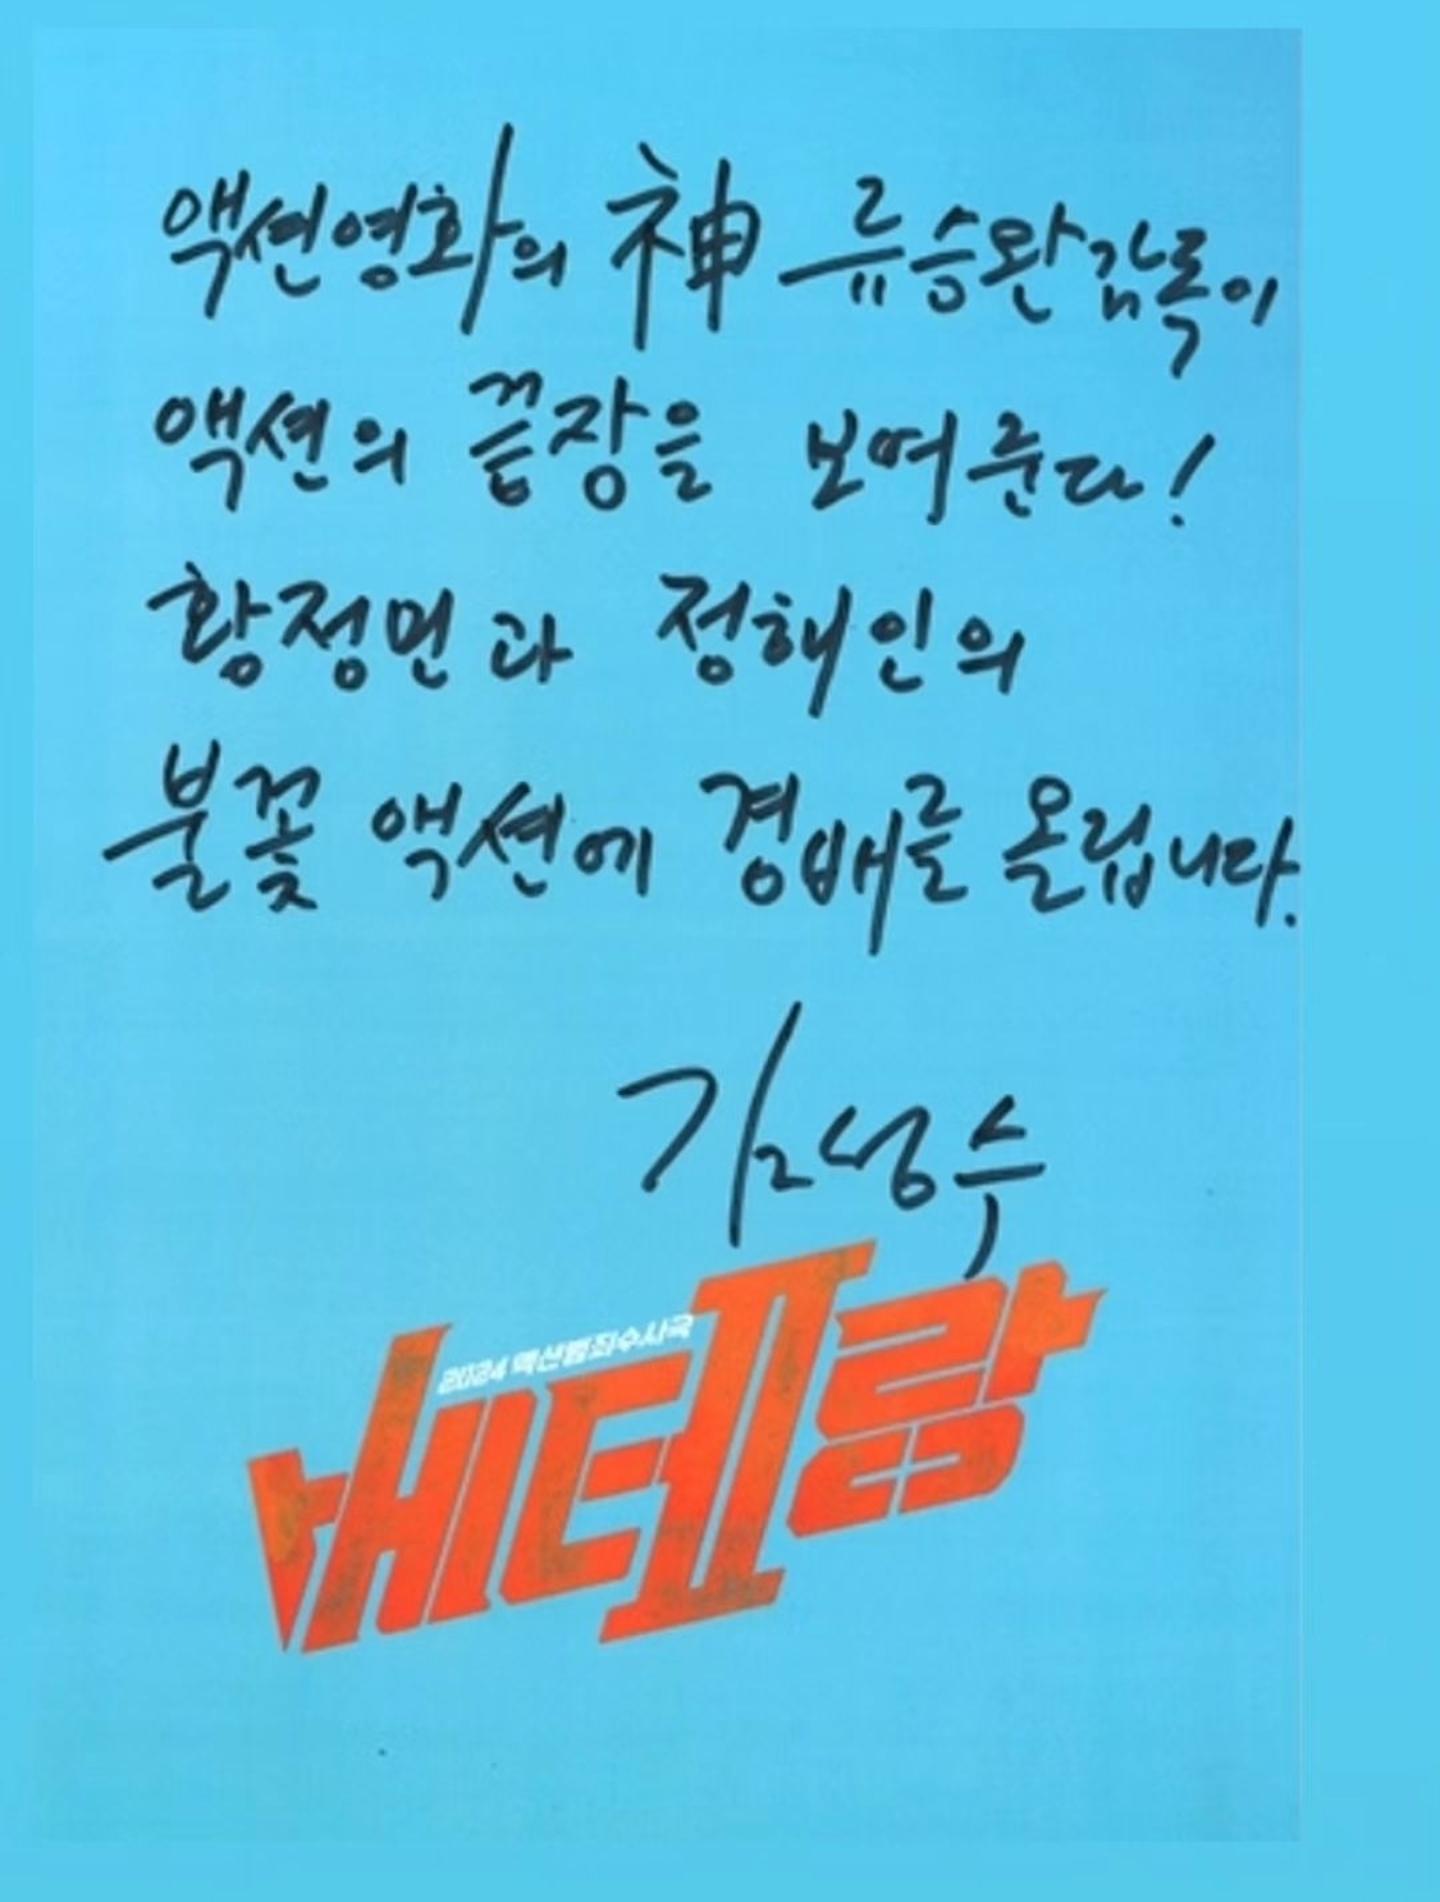 액션영화의 神 류승완감독이
액션의 끝장을 보여준다!
황정민과 정해인의
불꽃 액션에 경배를 올립니다.
김성수
2024 액션범죄수사극
베테랑